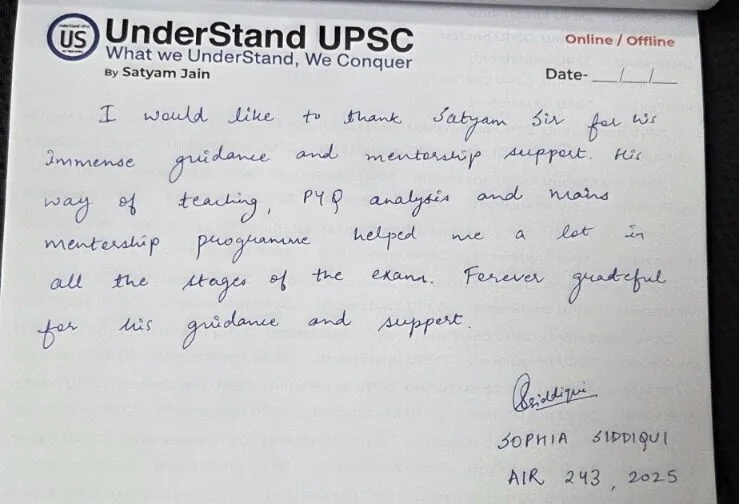 US
UnderStand UPSC
What we UnderStand, We Conquer
By Satyam Jain
Online / Offline
Date- __/__/__
I would like to thank Satyam Sir for his
immense guidance and mentorship support. His
way of teaching, PYQ analysis and mains
mentorship programme helped me a lot in
all the stages of the exam. Forever grateful
for his guidance and support.
Ssiddiqui
SOPHIA SIDDIQUI
AIR 243, 2025